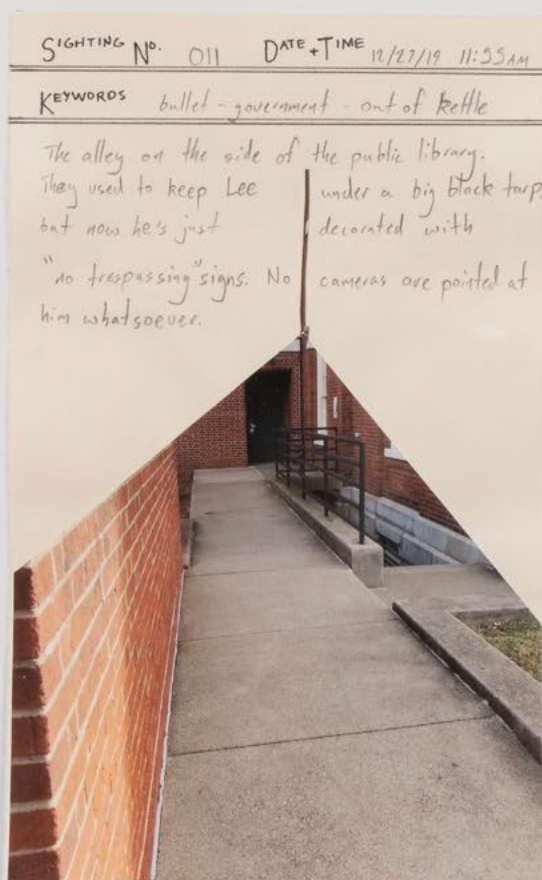 SIGHTING NO. 011 DATE + TIME 12/27/19 11:55AM
KEYWORDS bullet - government - out of kettle
The alley on the side of the public library.
They used to keep Lee under a big black tarp,
but now he's just decorated with
"no trespassing" signs. No cameras are pointed at
him whatsoever.